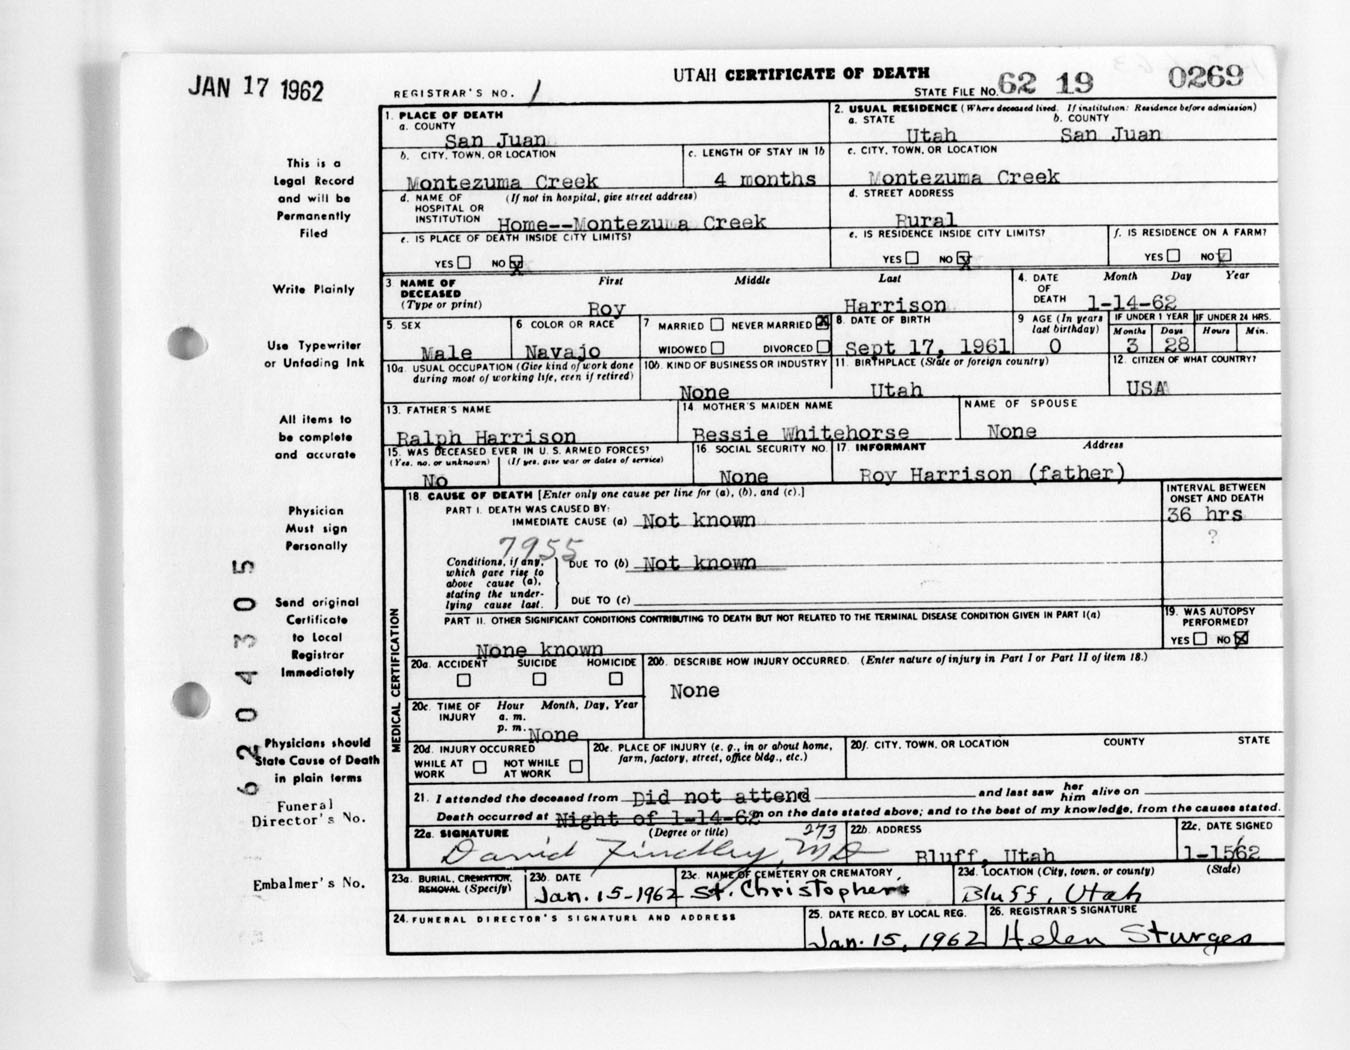 JAN 17 1962
UTAH CERTIFICATE OF DEATH
REGISTRAR'S NO. 1
STATE FILE NO. 62 19 0269
This is a
Legal Record
and will be
Permanently
Filed
Write Plainly
Use Typewriter
or Unfading Ink
All items to
be complete
and accurate
Physician
Must sign
Personally
Send original
Certificate
to Local
Registrar
Immediately
Physicians should
State Cause of Death
in plain terms
Funeral
Director's No.
Embalmer's No.
6204305
1. PLACE OF DEATH
a. COUNTY
San Juan
2. USUAL RESIDENCE (Where deceased lived. If institution: Residence before admission)
a. STATE b. COUNTY
Utah San Juan
b. CITY, TOWN, OR LOCATION
Montezuma Creek
c. LENGTH OF STAY IN 1b
4 months
c. CITY, TOWN, OR LOCATION
Montezuma Creek
d. NAME OF (If not in hospital, give street address)
HOSPITAL OR
INSTITUTION Home--Montezuma Creek
d. STREET ADDRESS
Rural
e. IS PLACE OF DEATH INSIDE CITY LIMITS?
YES NO X
e. IS RESIDENCE INSIDE CITY LIMITS?
YES NO X
f. IS RESIDENCE ON A FARM?
YES NO
3 NAME OF First Middle Last
DECEASED
(Type or print) Roy Harrison
4. DATE Month Day Year
OF
DEATH 1-14-62
5. SEX
Male
6 COLOR OR RACE
Navajo
7 MARRIED NEVER MARRIED X
WIDOWED DIVORCED
8. DATE OF BIRTH
Sept 17, 1961
9 AGE (In years
last birthday)
0
IF UNDER 1 YEAR IF UNDER 24 HRS.
Months Days Hours Min.
3 28
10a. USUAL OCCUPATION (Give kind of work done
during most of working life, even if retired)
10b. KIND OF BUSINESS OR INDUSTRY
None
11. BIRTHPLACE (State or foreign country)
Utah
12. CITIZEN OF WHAT COUNTRY?
USA
13. FATHER'S NAME
Ralph Harrison
14 MOTHER'S MAIDEN NAME
Bessie Whitehorse
NAME OF SPOUSE
None
15. WAS DECEASED EVER IN U.S. ARMED FORCES?
(Yes, no, or unknown) (If yes, give war or dates of service)
No
16 SOCIAL SECURITY NO.
None
17. INFORMANT Address
Roy Harrison (father)
MEDICAL CERTIFICATION
18. CAUSE OF DEATH [Enter only one cause per line for (a), (b), and (c).]
INTERVAL BETWEEN
ONSET AND DEATH
PART I. DEATH WAS CAUSED BY:
IMMEDIATE CAUSE (a) Not known
36 hrs
?
7955
Conditions, if any,
which gave rise to
above cause (a),
stating the under-
lying cause last.
DUE TO (b) Not known
DUE TO (c)
PART II. OTHER SIGNIFICANT CONDITIONS CONTRIBUTING TO DEATH BUT NOT RELATED TO THE TERMINAL DISEASE CONDITION GIVEN IN PART I(a)
None known
19. WAS AUTOPSY
PERFORMED?
YES NO X
20a. ACCIDENT SUICIDE HOMICIDE
20b. DESCRIBE HOW INJURY OCCURRED. (Enter nature of injury in Part I or Part II of item 18.)
None
20c. TIME OF Hour Month, Day, Year
INJURY a. m.
p. m. None
20d. INJURY OCCURRED
WHILE AT NOT WHILE
WORK AT WORK
20e. PLACE OF INJURY (e. g., in or about home,
farm, factory, street, office bldg., etc.)
20f. CITY, TOWN, OR LOCATION COUNTY STATE
21. I attended the deceased from Did not attend and last saw her him alive on
Death occurred at Night of 1-14-62 m on the date stated above; and to the best of my knowledge, from the causes stated.
22a. SIGNATURE (Degree or title) 273
David Findley, MD
22b. ADDRESS
Bluff, Utah
22c. DATE SIGNED
1-15/62
23a. BURIAL, CREMATION,
REMOVAL (Specify)
23b. DATE
Jan. 15-1962
23c. NAME OF CEMETERY OR CREMATORY
St. Christophers
23d. LOCATION (City, town, or county) (State)
Bluff, Utah
24. FUNERAL DIRECTOR'S SIGNATURE AND ADDRESS
25. DATE RECD. BY LOCAL REG.
Jan. 15, 1962
26. REGISTRAR'S SIGNATURE
Helen Sturges